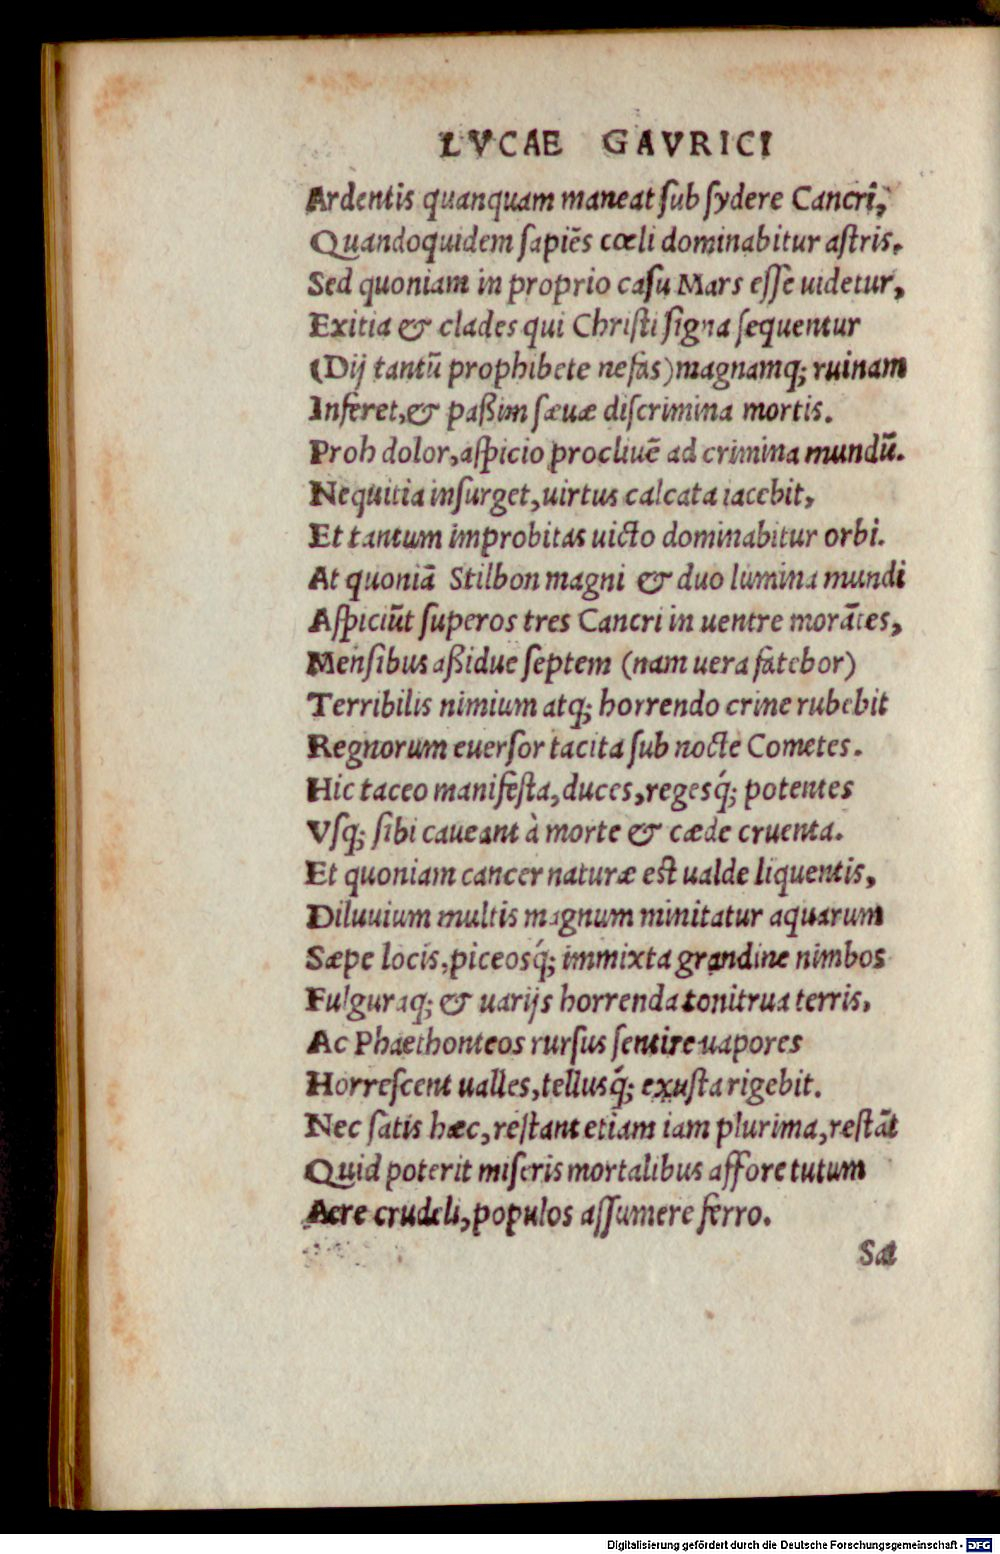 LVCAE GAVRICI
Ardentis quanquam maneat ſub ſydere Cancri,
Quandoquidem ſapiēs cœli dominabitur aſtris.
Sed quoniam in proprio caſu Mars eſſe uidetur,
Exitia & clades qui Chriſti ſigna ſequentur
(Dij tantū prophibete nefas) magnamq; ruinam
Inferet, & paßim ſæuæ diſcrimina mortis.
Proh dolor, aſpicio procliuē ad crimina mundū.
Nequitia inſurget, uirtus calcata iacebit,
Et tantum improbitas uicto dominabitur orbi.
At quoniā Stilbon magni & duo lumina mundi
Aſpiciūt ſuperos tres Cancri in uentre morātes,
Menſibus aßidue ſeptem (nam uera fatebor)
Terribilis nimium atq; horrendo crine rubebit
Regnorum euerſor tacita ſub nocte Cometes.
Hic taceo manifeſta, duces, regesq́; potentes
Vſq; ſibi caueant à morte & cæde cruenta.
Et quoniam cancer naturæ est ualde liquentis,
Diluuium multis magnum minitatur aquarum
Sæpe locis, piceosq́; immixta grandine nimbos
Fulguraq; & uarijs horrenda tonitrua terris,
Ac Phaethonteos rurſus ſentire uapores
Horreſcent ualles, tellusq́; exuſta rigebit.
Nec ſatis hæc, reſtant etiam iam plurima, reſtāt
Quid poterit miſeris mortalibus affore tutum
Aere crudeli, populos aſſumere ferro.
Sæ
Digitalisierung gefördert durch die Deutsche Forschungsgemeinschaft - DFG